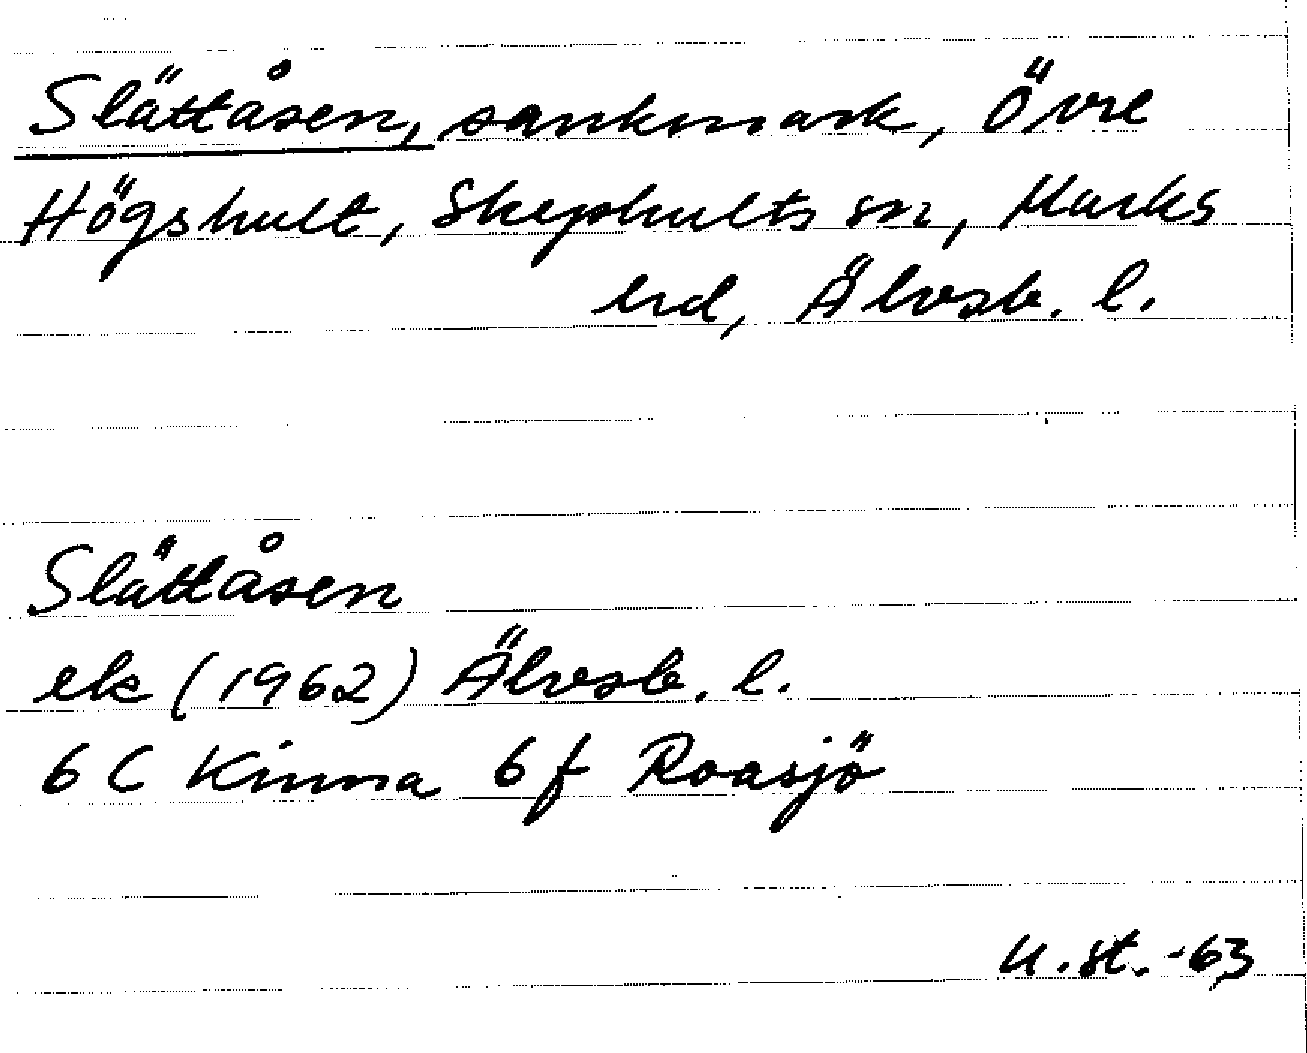 Slättåsen, sankmark, Övre
Högshult, Skephults sn, Marks
hrd, Älvsb. l.
Slättåsen
ek (1962) Älvsb. l.
6 C Kinna 6 f Roasjö
U. st. -63